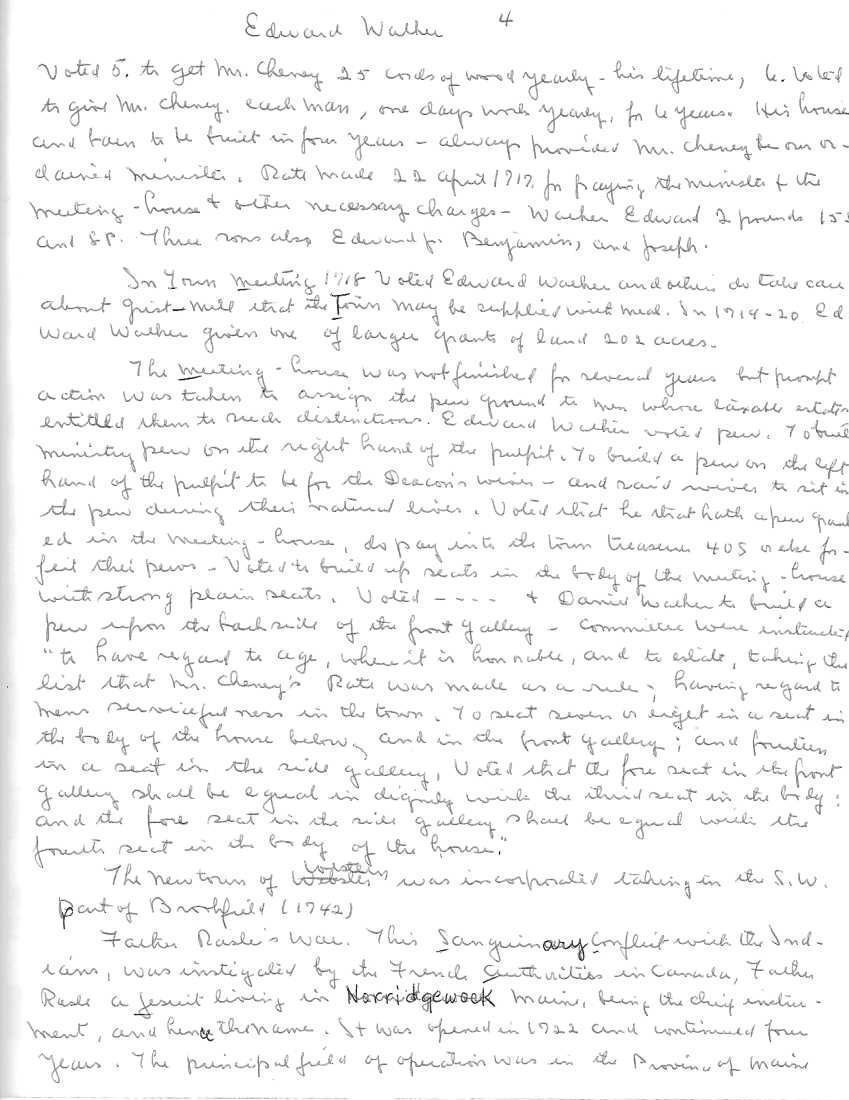 Edward Walker 4
Voted 5. to get Mr. Cheney 25 cords of wood yearly - his lifetime, 6. Voted
to give Mr. Cheney, each man, one days work yearly, for 6 years. His house
and barn to be built in four years - always provided Mr. Cheney be our or-
dained minister. Rate made 22 april 1717, for paying the minister & the
meeting-house & other necessary charges - Walker Edward 2 pounds 15s
and 8P. Three sons also Edward jr. Benjamin, and Joseph.
In Town Meeting 1718 Voted Edward Walker and others do take care
about Grist-mill that the Town may be supplied with meal. In 1719-20 Ed
ward Walker given one of larger grants of land 202 acres.
The Meeting-house was not finished for several years but prompt
action was taken to assign the pew ground to men whose taxable estates
entitled them to such distinctions. Edward Walker voted pew. To build
ministry pew on the right hand of the pulpit. To build a pew on the left
hand of the pulpit to be for the Deacon's wives - and said wives to sit in
the pew during their natural lives. Voted that he that hath a pew grant
ed in the Meeting-house, do pay into the town treasurer 40S or else for-
feit their pews - Voted to build up seats in the body of the meeting-house
with strong plain seats. Voted ---- & Daniel Walker to build a
pew upon the backside of the front gallery - Committee were instructed
"to have regard to age, where it is honorable, and to estate, taking the
list that Mr. Cheney's Rate was made as a rule; having regard to
mens servicefulness in the town. To seat seven or eight in a seat in
the body of the house below, and in the front gallery; and fourteen
in a seat in the side gallery, Voted that the fore seat in the front
gallery shall be equal in dignity with the third seat in the body:
and the fore seat in the side gallery shall be equal with the
fourth seat in the body of the house."
The new town of Webster Western was incorporated taking in the S.W.
part of Brookfield (1742)
Father Rasle's War. This Sanguinary Conflict with the Ind-
ians, was instigated by the French Authorities in Canada, Father
Rasle a Jesuit living in Norridgewock Maine, being the chief instru-
ment, and hence the name. It was opened in 1722 and continued four
years. The principal field of operation was in the Province of Maine